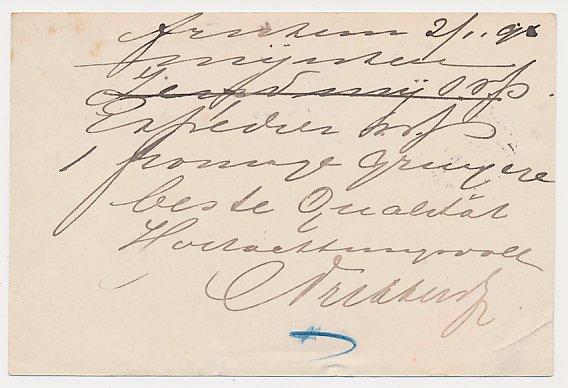 Arnhem 2/1 98
Mijnheer
Zend mij s.v.p.
Expédier s.v.p
1 fromage gruyere
beste Qualität
Hochachtungsvoll